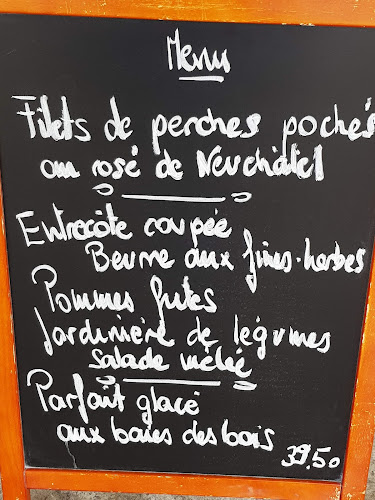 Menu
Filets de perches pochés
au rosé de Neuchâtel
Entrecôte coupée
Beurre aux fines-herbes
Pommes frites
Jardinière de légumes
Salade mêlée
Parfait glacé
aux baies des bois
39.50